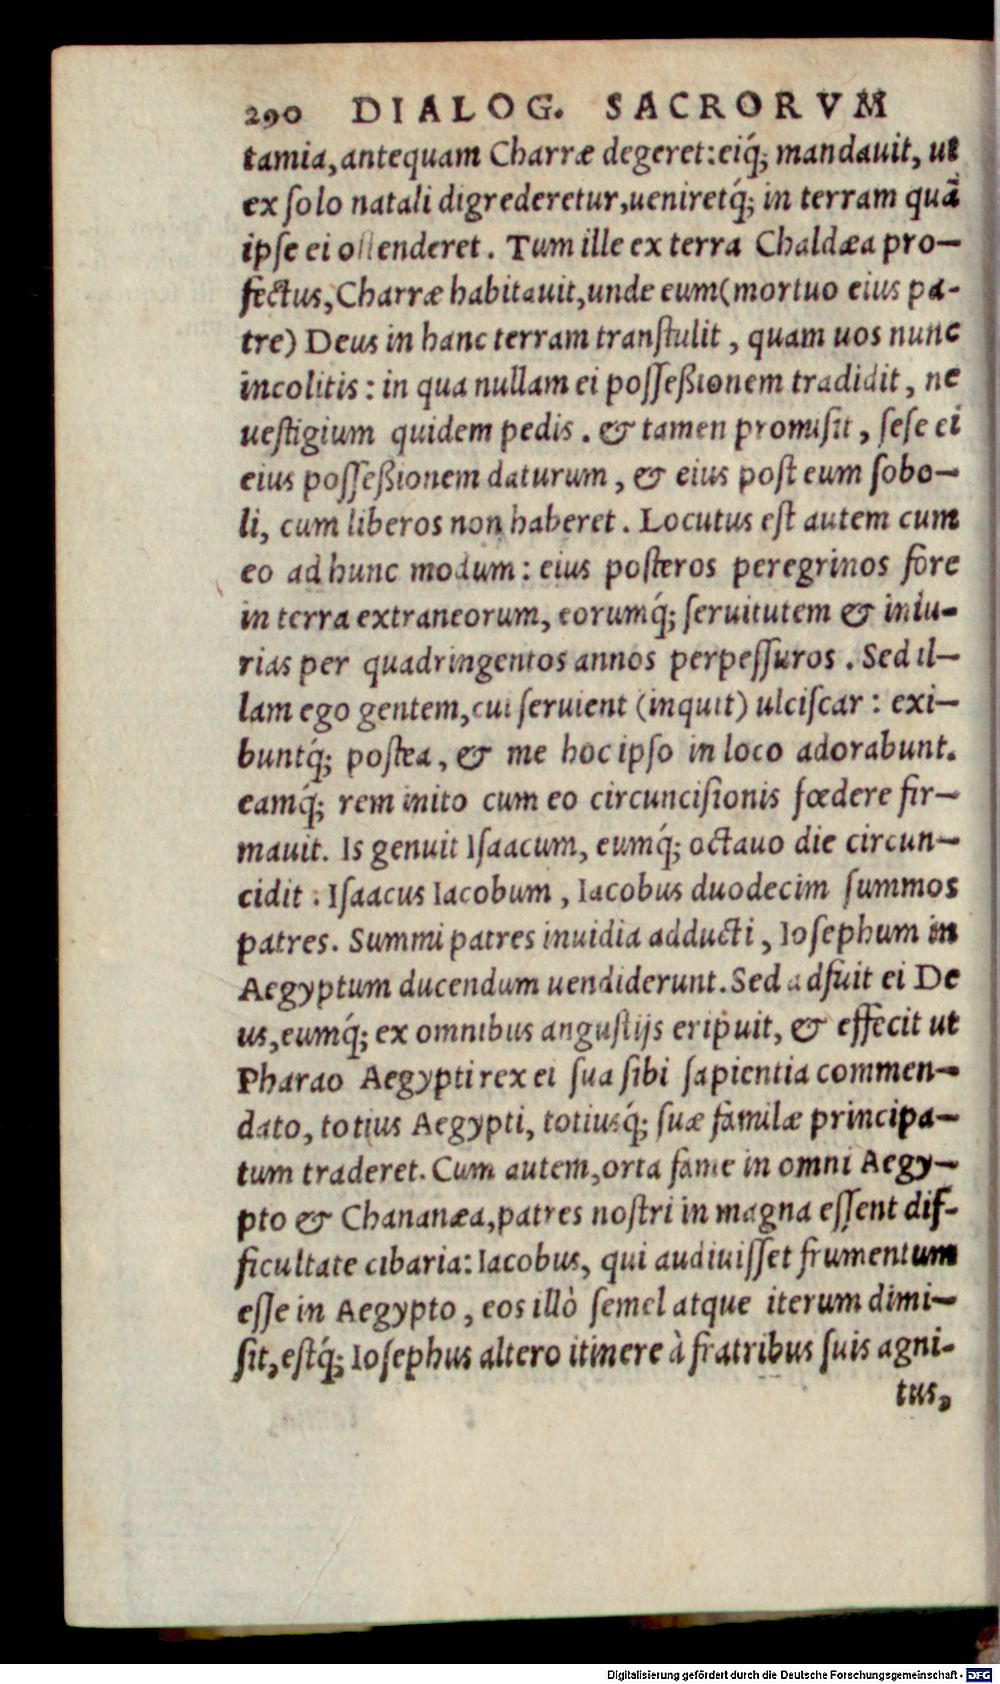 290 DIALOG. SACRORVM
tamia, antequam Charræ degeret: eiq́; mandauit, ut
ex ſolo natali digrederetur, ueniretq́; in terram quā
ipſe ei oſtenderet. Tum ille ex terra Chaldæa pro-
fectus, Charræ habitauit, unde eum (mortuo eius pa-
tre) Deus in hanc terram tranſtulit, quam uos nunc
incolitis: in qua nullam ei poſſeßionem tradidit, ne
ueſtigium quidem pedis. & tamen promiſit, ſeſe ei
eius poſſeßionem daturum, & eius poſt eum ſobo-
li, cum liberos non haberet. Locutus eſt autem cum
eo ad hunc modum: eius poſteros peregrinos fore
in terra extraneorum, eorumq́; ſeruitutem & iniu-
rias per quadringentos annos perpeſſuros. Sed il-
lam ego gentem, cui ſeruient (inquit) ulciſcar: exi-
buntq́; poſtea, & me hoc ipſo in loco adorabunt.
eamq́; rem inito cum eo circunciſionis fœdere fir-
mauit. Is genuit Iſaacum, eumq́; octauo die circun-
cidit: Iſaacus Iacobum, Iacobus duodecim ſummos
patres. Summi patres inuidia adducti, Ioſephum in
Aegyptum ducendum uendiderunt. Sed adfuit ei De
us, eumq́; ex omnibus anguſtijs eripuit, & effecit ut
Pharao Aegypti rex ei ſua ſibi ſapientia commen-
dato, totius Aegypti, totiusq́; ſuæ familæ principa-
tum traderet. Cum autem, orta fame in omni Aegy-
pto & Chananæa, patres noſtri in magna eſſent dif-
ficultate cibaria: Iacobus, qui audiuiſſet frumentum
eſſe in Aegypto, eos illò ſemel atque iterum dimi-
ſit, eſtq́; Ioſephus altero itinere à fratribus ſuis agni-
tus,
Digitalisierung gefördert durch die Deutsche Forschungsgemeinschaft - DFG